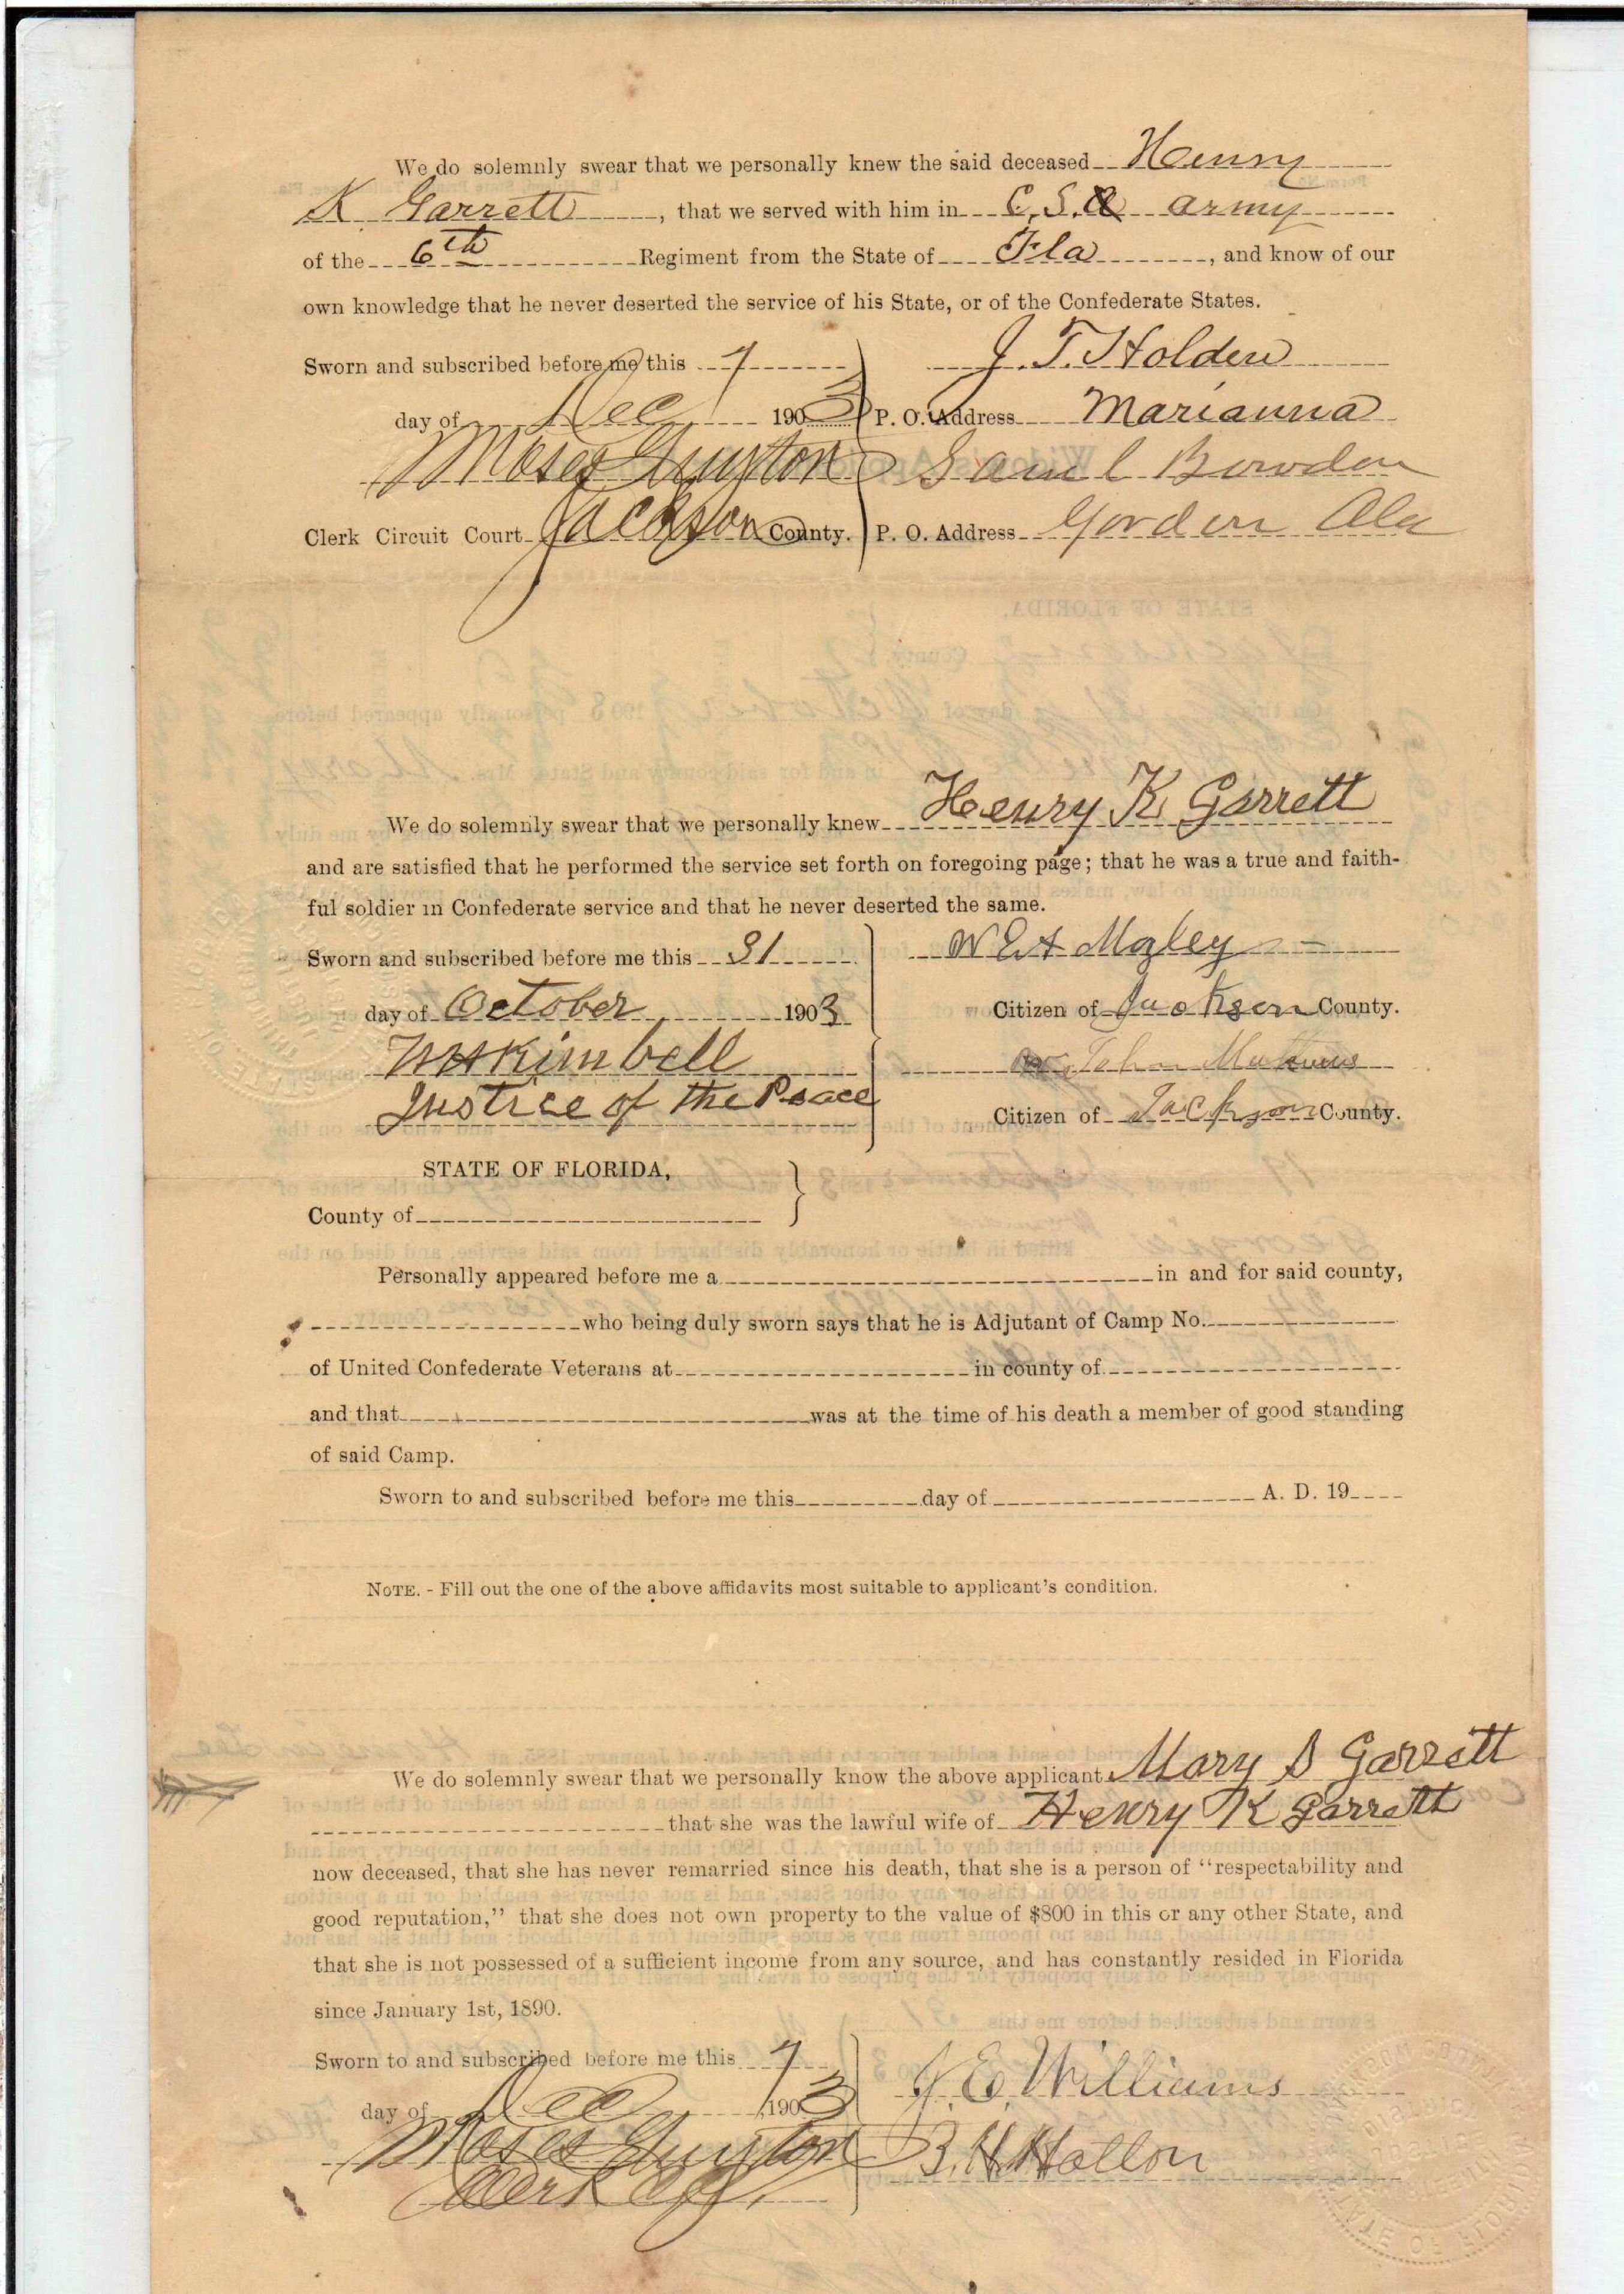 We do solemnly swear that we personally knew the said deceased Henry
K Garrett, that we served with him in C. S. A army
of the 6th Regiment from the State of Fla, and know of our
own knowledge that he never deserted the service of his State, or of the Confederate States.
Sworn and subscribed before me this 7 J. T. Holden
day of Dec 1903 P. O. Address Marianna
Moses Guyton Saml Bowden
Clerk Circuit Court Jackson County. P. O. Address Gordon Ala
We do solemnly swear that we personally knew Henry K Garrett
and are satisfied that he performed the service set forth on foregoing page; that he was a true and faith-
ful soldier in Confederate service and that he never deserted the same.
Sworn and subscribed before me this 31 Mozley
day of October 1903 Citizen of Jackson County.
Kimbell John
Justice of the Peace Citizen of Jackson County.
STATE OF FLORIDA,
County of
Personally appeared before me a in and for said county,
who being duly sworn says that he is Adjutant of Camp No.
of United Confederate Veterans at in county of
and that was at the time of his death a member of good standing
of said Camp.
Sworn to and subscribed before me this day of A. D. 19
NOTE. - Fill out the one of the above affidavits most suitable to applicant's condition.
We do solemnly swear that we personally know the above applicant Mary S Garrett
that she was the lawful wife of Henry K Garrett
now deceased, that she has never remarried since his death, that she is a person of "respectability and
good reputation," that she does not own property to the value of $800 in this or any other State, and
that she is not possessed of a sufficient income from any source, and has constantly resided in Florida
since January 1st, 1890.
Sworn to and subscribed before me this 7 J. E. Williams
day of Dec 1903
Moses Guyton B. H.
Clerk